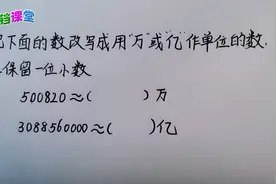 铛课堂
下面的数改写成用"万"或"亿"作单位的数.
保留一位小数
500820≈( )万
3088560000≈( )亿